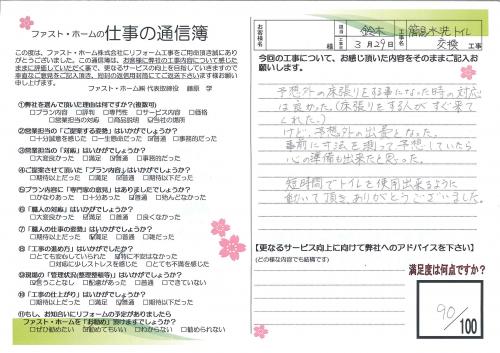 ファスト・ホームの仕事の通信簿
この度は、ファスト・ホーム株式会社にリフォーム工事をご用命頂き誠にあり
がとうございました。この通信簿は、お客様に弊社の工事内容について感じた
ままに評価していただく事で、更なるサービスの向上を目指していきますので
率直なご意見をご記入頂き、同封の返信用封筒にてご返送下さいます様お願い
申し上げます。
ファスト・ホーム㈱ 代表取締役 藤原 学
①弊社を選んで頂いた理由は何ですか?(複数可)
□プラン内容 □評判 □専門性 □サービス内容 □価格
□営業担当の対応 □商品説明 □当社の運例
②営業担当の「ご提案する姿勢」はいかがでしょうか?
□十分誠意を感じた □一生懸命だった 普通 □事務的だった
③営業担当の「対応」はいかがでしょうか?
□大変良かった □満足 普通 □事務的だった
④ご提案させて頂いた「プラン内容」はいかがでしたか?
□期待以上だった □満足 普通 □期待以下だった
⑤プラン内容に「専門家の意見」はありましたでしょうか?
□かなりあった □少しあった 普通 □殆んど無い
⑥「職人の対応」はいかがでしょうか?
□大変良かった 満足 □普通 □良くなかった
⑦「職人の仕事の姿勢」はいかがでしょうか?
□期待以上だった 満足 □普通 □雑だった
⑧「工事の進め方」はいかがでしたか?
□とても安心していられた 特に不安はなかった
□対応に少しストレスを感じた □とても不満を感じた
⑨現場の「管理状況(整理整頓等)」はいかがでしょうか?
言うことなし □配慮があった □普通 □不満だった
⑩「工事の仕上がり」はいかがでしょうか?
□期待以上だった 満足 □普通 □期待以下だった
⑪もし、お知合いにリフォームの予定がありましたら
ファスト・ホームを「お勧め」頂けますでしょうか?
□ぜひ勧めたい 勧めてもいい □わからない □勧められない
お客様名 様 担当 鈴木 工事名 簡易水洗トイレ
3月29日 交換 工事
今回の工事について、お感じ頂いた内容をそのままご記入お
願いします。
予想外の床張りをする事になった時の対応
は良かった。(床張りをする人がすぐ来て
くれた。)
けど、予想外の出費となった。
事前に寸法を測って予想していたら
心の準備も出来たと思った。
短時間でトイレを使用出来るように
動いて頂きありがとうございました。
【更なるサービス向上に向けて弊社へのアドバイスを下さい】
(どの様な内容でも結構です)
満足度は何点ですか?
90
/100